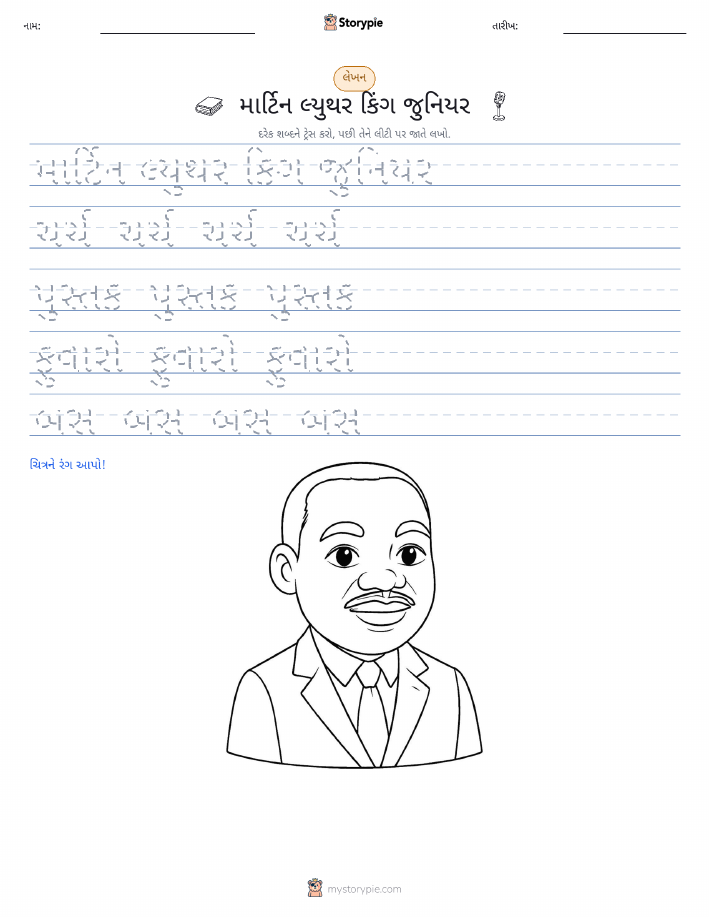 નામ:
Storypie
તારીખ:
લેખન
માર્ટિન લ્યુથર કિંગ જુનિયર
દરેક શબ્દને ટ્રેસ કરો, પછી તેને લીટી પર જાતે લખો.
માર્ટિન લ્યુથર કિંગ જુનિયર
ચર્ચ ચર્ચ ચર્ચ ચર્ચ
પુસ્તક પુસ્તક પુસ્તક
ફુવારો ફુવારો ફુવારો
બસ બસ બસ બસ
ચિત્રને રંગ આપો!
mystorypie.com